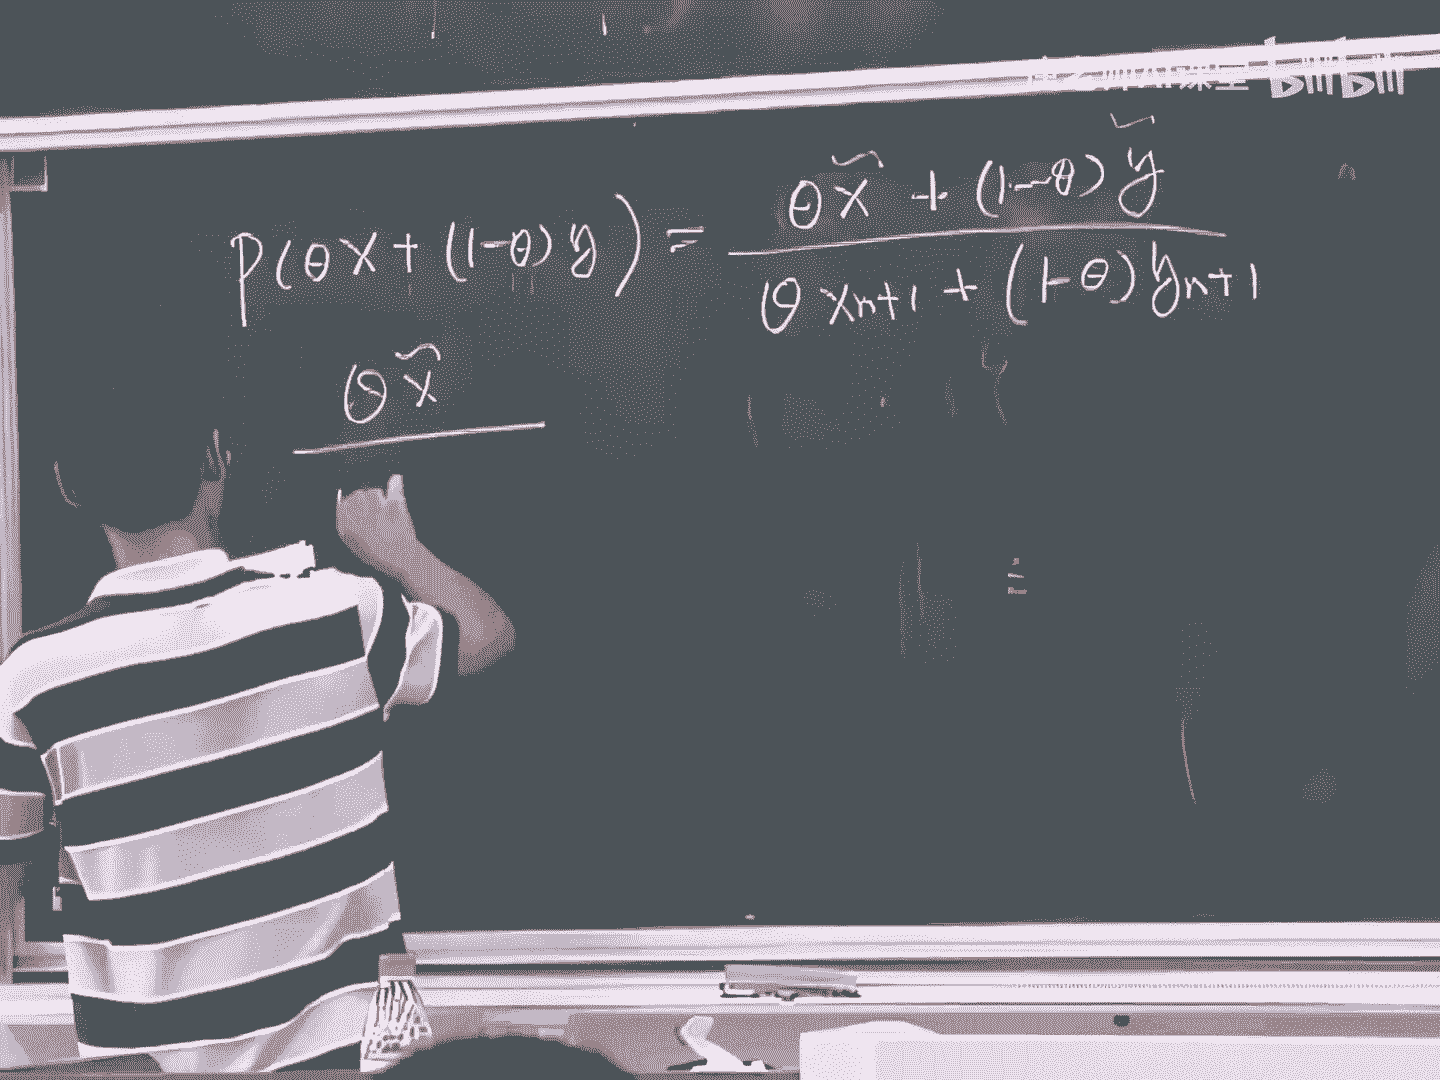 bilibili
P(θx + (1-θ)y) = \frac{θ\tilde{x} + (1-θ)\tilde{y}}{θx_{n+1} + (1-θ)y_{n+1}}
θ\tilde{x}